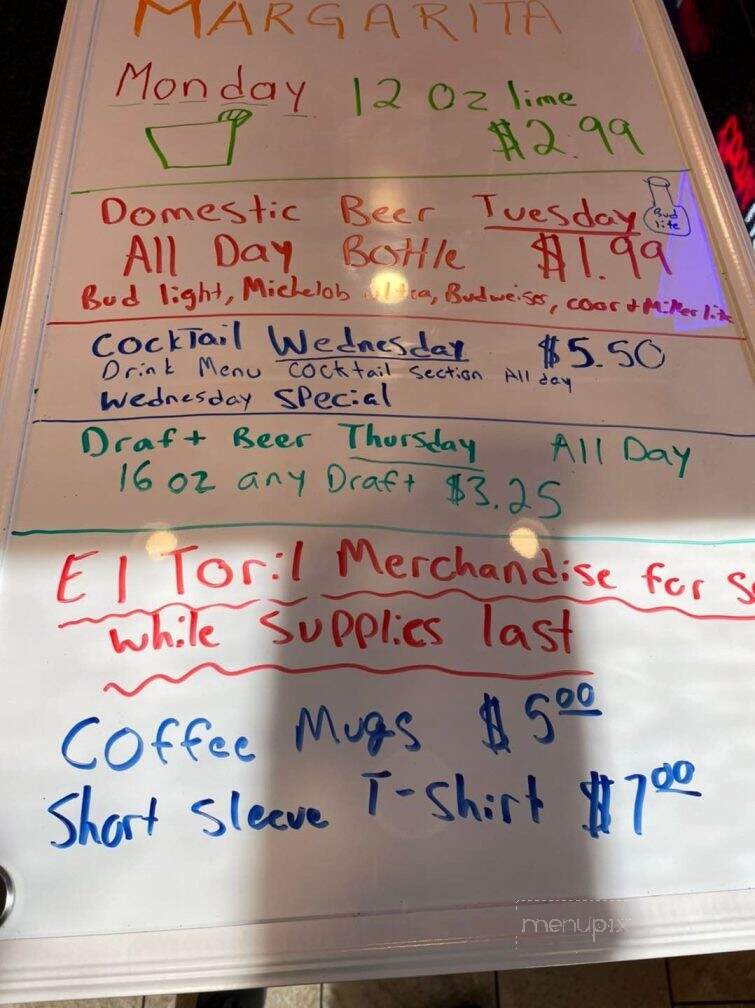 MARGARITA
Monday 12 oz lime
$2.99
Domestic Beer Tuesday
Bud lite
All Day Bottle $1.99
Bud light, Michelob ultra, Budweiser, coor & Miller lite
Cocktail Wednesday $5.50
Drink Menu cocktail section All day
Wednesday special
Draft Beer Thursday All Day
16 oz any Draft $3.25
El Toril Merchandise for
while supplies last
Coffee Mugs $5.00
Short sleeve T-Shirt $7.00
menupix